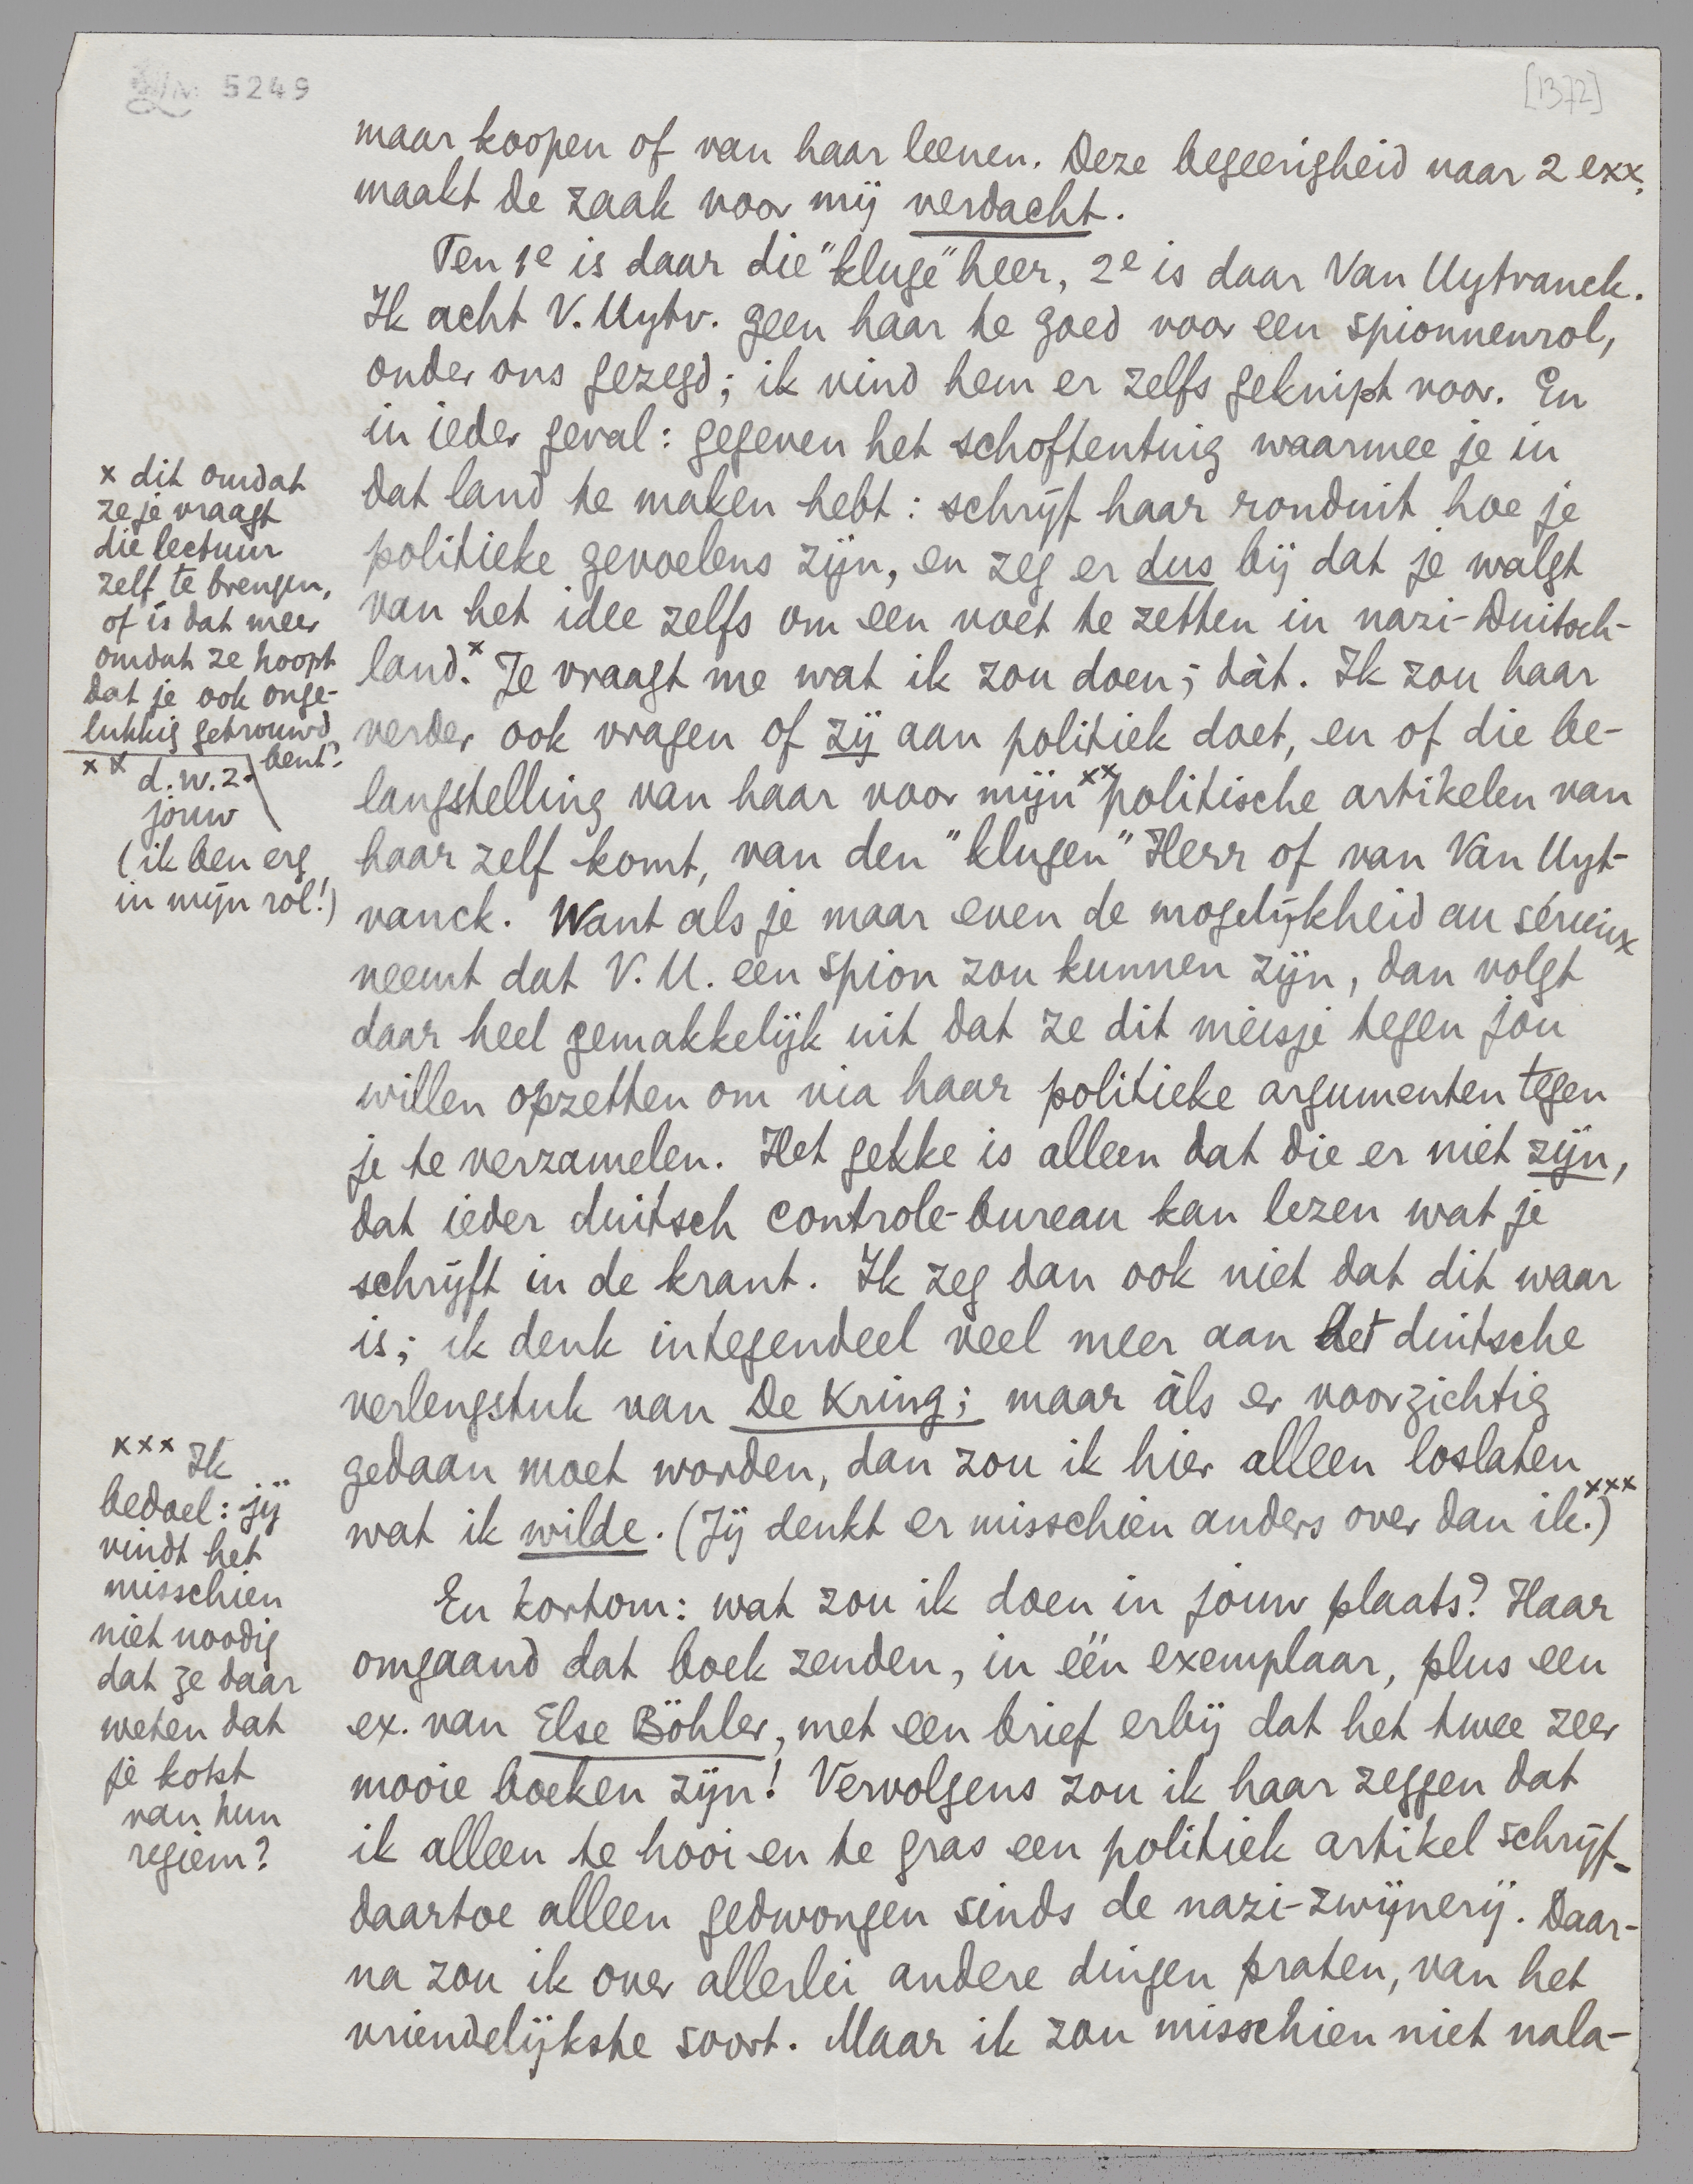 5249
[1372]
maar koopen of van haar leenen. Deze begeerigheid naar 2 exx.
maakt de zaak voor mij verdacht.
Ten 1e is daar die "kluge" heer, 2e is daar Van Uytvanck.
Ik acht V. Uytv. geen haar te goed voor een spionnenrol,
onder ons gezegd; ik vind hem er zelfs geknipt voor. En
in ieder geval: gegeven het schoftentuig waarmee je in
dat land te maken hebt: schrijf haar ronduit hoe je
politieke gevoelens zijn, en zeg er dus bij dat je walgt
van het idee zelfs om een voet te zetten in nazi-Duitsch-
land.x Je vraagt me wat ik zou doen; dàt. Ik zou haar
verder ook vragen of zij aan politiek doet, en of die be-
langstelling van haar voor mijn xx politische artikelen van
haar zelf komt, van den "klugen" Herr of van Van Uyt-
vanck. Want als je maar even de mogelijkheid au sérieux
neemt dat V. U. een spion zou kunnen zijn, dan volgt
daar heel gemakkelijk uit dat ze dit meisje tegen jou
willen opzetten om via haar politieke argumenten tegen
je te verzamelen. Het gekke is alleen dat die er niet zijn,
dat ieder duitsch controle-bureau kan lezen wat je
schrijft in de krant. Ik zeg dan ook niet dat dit waar
is; ik denk integendeel veel meer aan het duitsche
verlengstuk van De Kring; maar àls er voorzichtig
gedaan moet worden, dan zou ik hier alleen loslaten
wat ik wilde. (Jij denkt er misschien anders over dan ik.xxx)
En kortom: wat zou ik doen in jouw plaats? Haar
omgaand dat boek zenden, in één exemplaar, plus een
ex. van Else Böhler, met een brief erbij dat het twee zeer
mooie boeken zijn! Vervolgens zou ik haar zeggen dat
ik alleen te hooi en te gras een politiek artikel schrijf-
daartoe alleen gedwongen sinds de nazi-zwijnerij. Daar-
na zou ik over allerlei andere dingen praten, van het
vriendelijkste soort. Maar ik zou misschien niet nala-
x dit omdat
ze je vraagt
die lectuur
zelf te brengen,
of is dat meer
omdat ze hoopt
dat je ook onge-
lukkig getrouwd
bent?
xx d.w.z.
jouw
(ik ben erg
in mijn rol!)
xxx Ik
bedoel: jij
vindt het
misschien
niet noodig
dat ze daar
weten dat
je kotst
van hun
regiem?